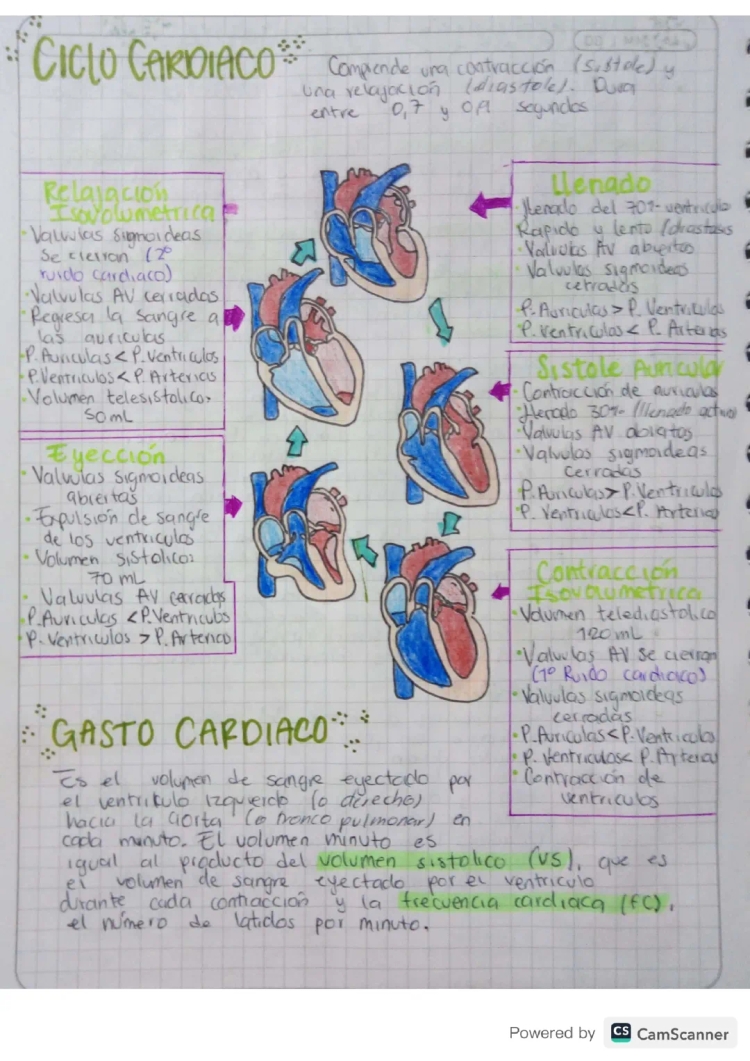 CICLO CARDIACO
Comprende una contracción (sístole) y
una relajación (diastole). Dura
entre 0,7 y 0,9 segundos
Relajación
Isovolumetrica
• Valvulas sigmoideas
se cierran (2º
ruido cardiaco)
• Valvulas AV cerradas
• Regresa la sangre a
las auriculas
• P. Auriculas < P. Ventriculos
• P. Ventriculos < P. Arterias
• Volumen telesistolico:
50 mL
Eyección
• Valvulas sigmoideas
abiertas
• Expulsión de sangre
de los ventriculos
• Volumen sistolico:
70 mL
• Valvulas AV cerradas
• P. Auriculas < P. Ventriculos
• P. Ventriculos > P. Arterias
Llenado
• Llenado del 70% ventriculo
Rapido y lento / diastasis
• Valvulas AV abiertas
• Valvulas sigmoideas
cerradas
P. Auriculas > P. Ventriculos
P. Ventriculos < P. Arterias
Sistole Auricular
• Contracción de auriculas
• Llenado 30% / llenado activo
• Valvulas AV abiertas
• Valvulas sigmoideas
cerradas
P. Auriculas > P. Ventriculos
P. Ventriculos < P. Arterias
Contracción
Isovolumetrica
• Volumen telediastolico
120 mL
• Valvulas AV se cierran
(1º Ruido cardiaco)
• Valvulas sigmoideas
cerradas
• P. Auriculas < P. Ventriculo
• P. Ventriculos < P. Arterias
• Contracción de
ventriculos
GASTO CARDIACO
Es el volumen de sangre eyectado por
el ventriculo izquierdo (o derecho)
hacia la aorta (o tronco pulmonar) en
cada minuto. El volumen minuto es
igual al producto del volumen sistolico (VS), que es
el volumen de sangre eyectado por el ventriculo
durante cada contracción y la frecuencia cardiaca (FC),
el número de latidos por minuto.
Powered by CS CamScanner